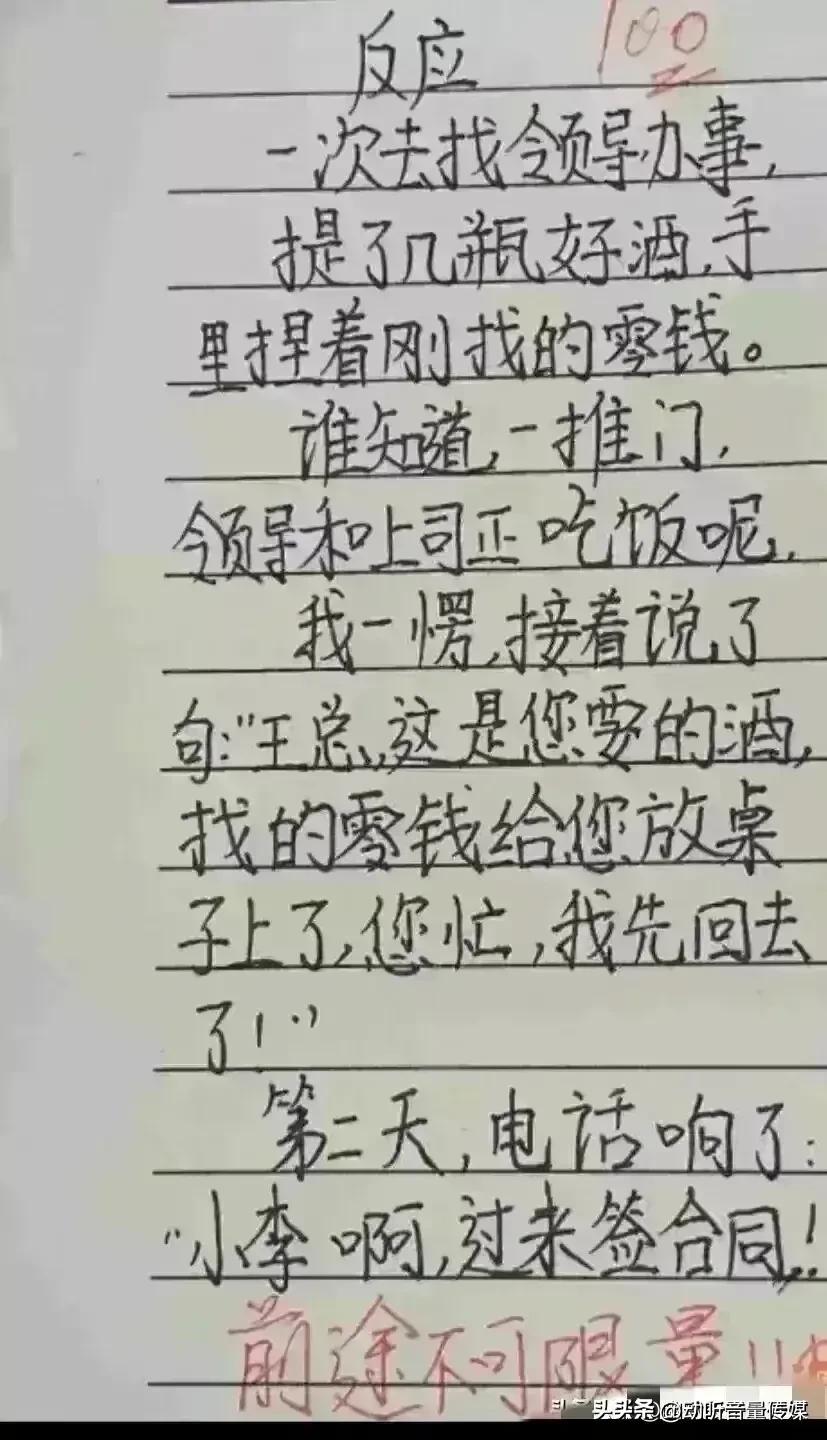 100
反应
一次去找领导办事,
提了几瓶好酒,手
里捏着刚找的零钱。
谁知道,一推门,
领导和上司正吃饭呢,
我一愣,接着说了
句:"王总,这是您要的酒,
找的零钱给您放桌
子上了,您忙,我先回去
了!"
第二天,电话响了:
"小李啊,过来签合同!
前途不可限量!!
头条 @动听音量传媒